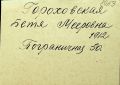 Гороховская
Бетя Мееровна
1912
Погранична 8а